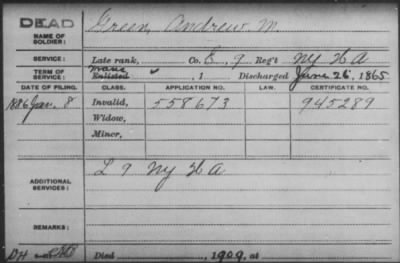 DEAD
NAME OF SOLDIER:
Green, Andrew M.
SERVICE: Late rank, Co. E, 9 Reg't NY H A
TERM OF SERVICE: Enlisted , 1 Discharged June 26, 1865
DATE OF FILING. CLASS. APPLICATION NO. LAW. CERTIFICATE NO.
1886 Jan. 8 Invalid, 558673 945289
Widow,
Minor,
ADDITIONAL SERVICES: L 9 NY H A
REMARKS:
Died , 1909, at